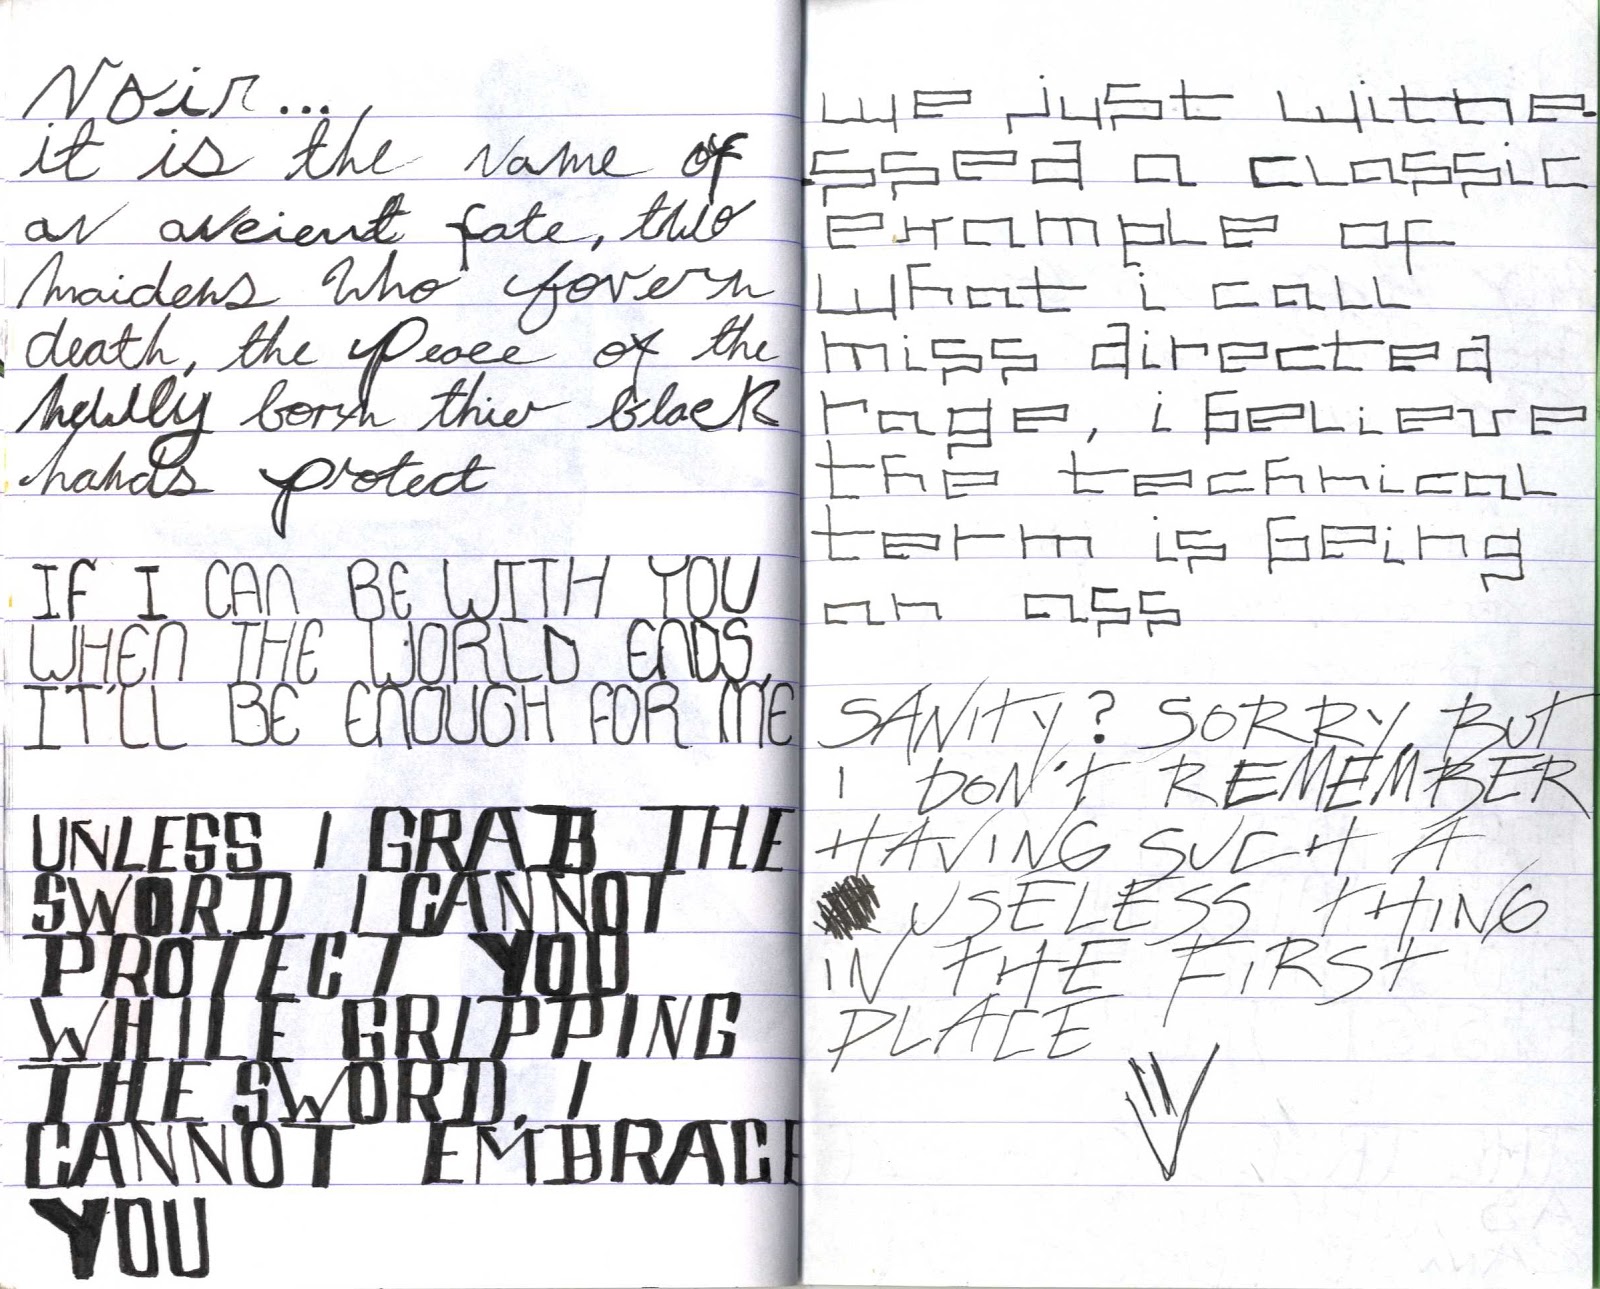 Noir...
it is the name of
an ancient fate, two
maidens who govern
death, the peace of the
newlly born thier black
hands protect
IF I CAN BE WITH YOU
WHEN THE WORLD ENDS,
IT'LL BE ENOUGH FOR ME
UNLESS I GRAB THE
SWORD I CANNOT
PROTECT YOU
WHILE GRIPPING
THE SWORD, I
CANNOT EMBRACE
YOU
we just witne-
ssed a classic
example of
what i call
miss directed
rage, i believe
the technical
term is being
an ass
SANITY? SORRY, BUT
I DON'T REMEMBER
HAVING SUCH A
USELESS THING
IN THE FIRST
PLACE